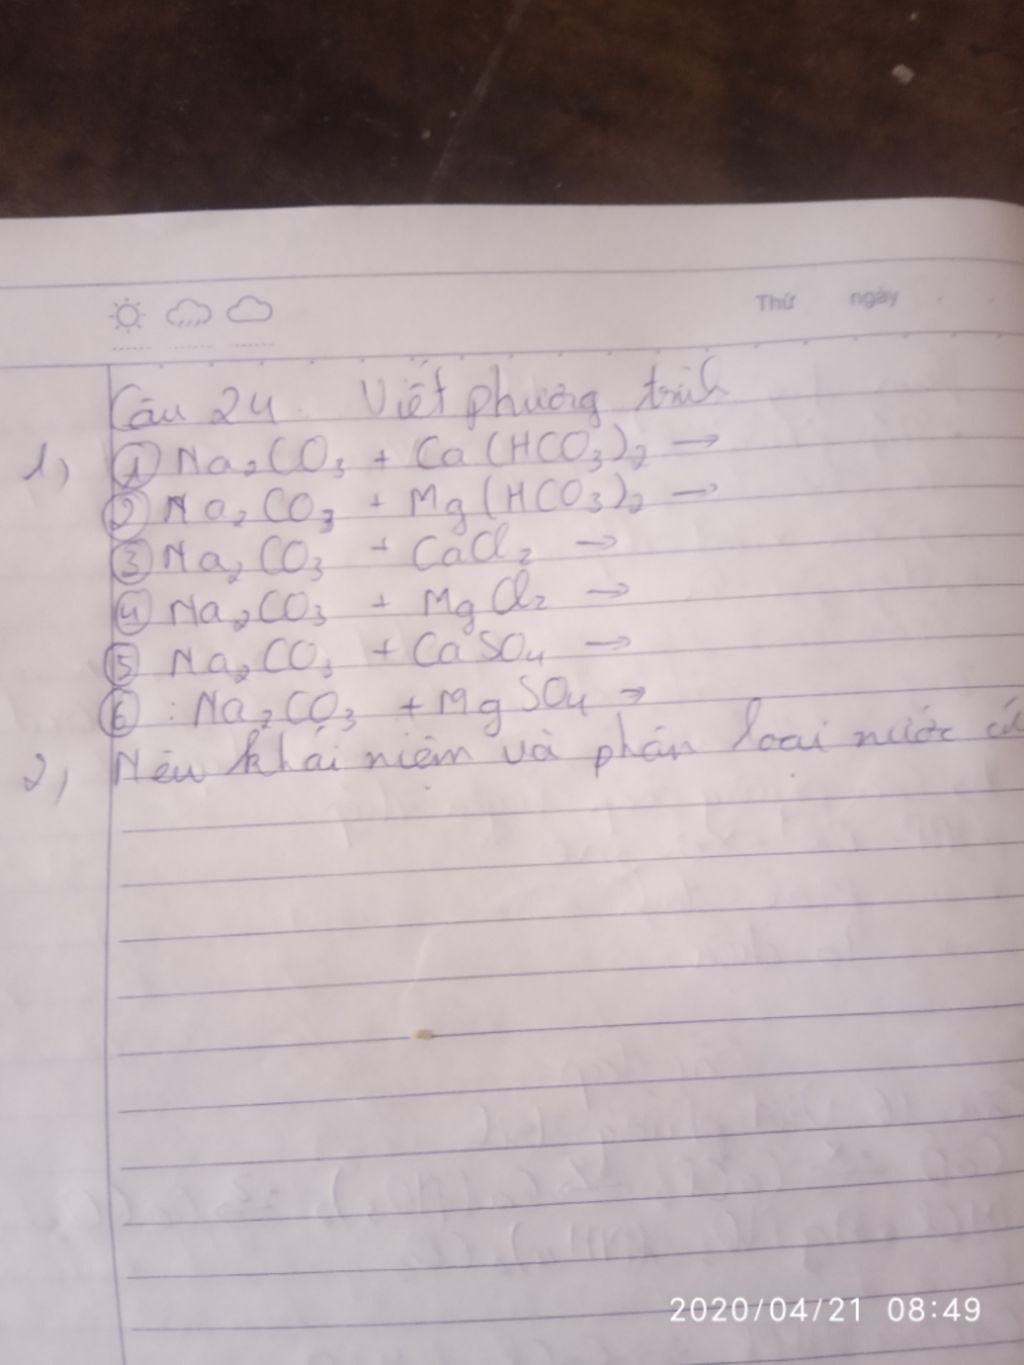 Thứ ngày
Câu 24. Viết phương trình
1) ① Na₂CO₃ + Ca(HCO₃)₂ →
② Na₂CO₃ + Mg(HCO₃)₂ →
③ Na₂CO₃ + CaCl₂ →
④ Na₂CO₃ + MgCl₂ →
⑤ Na₂CO₃ + CaSO₄ →
⑥ : Na₂CO₃ + MgSO₄ →
2) Nêu khái niệm và phân loại nước
2020/04/21 08:49